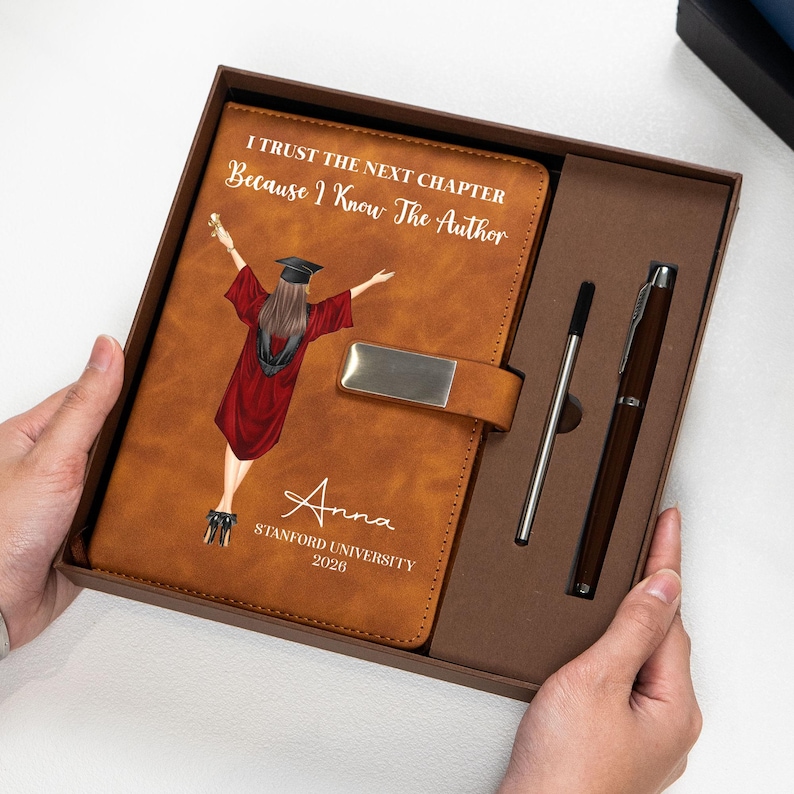 I TRUST THE NEXT CHAPTER
Because I Know The Author
Anna
STANFORD UNIVERSITY
2026